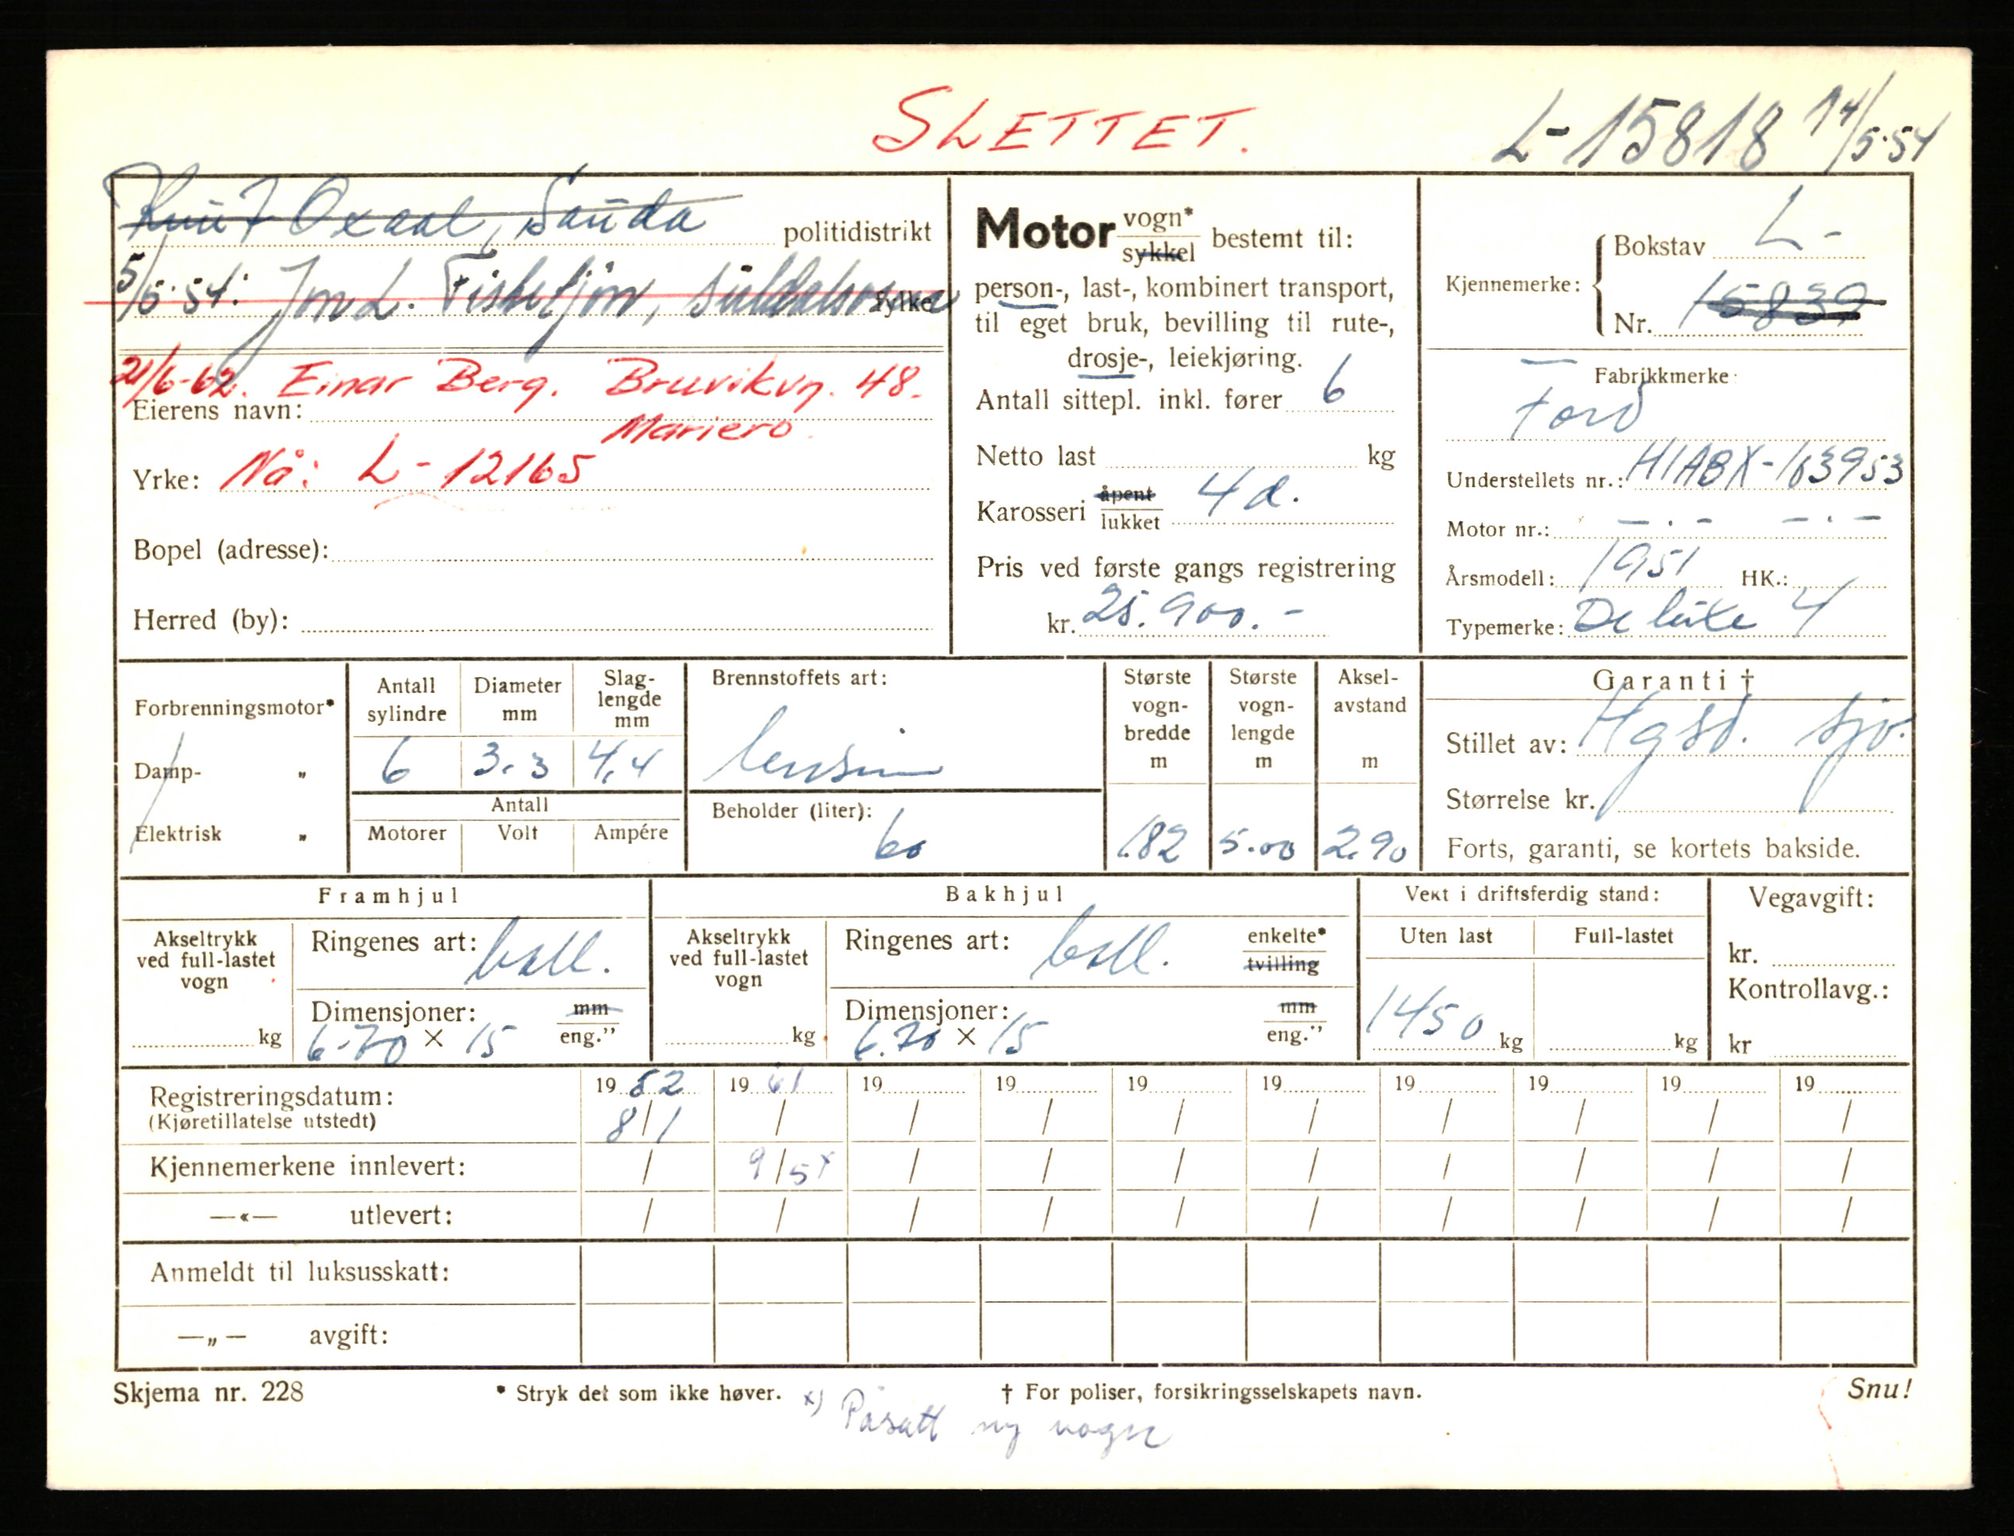 SLETTET.
L-15818 14/5-54
Knut Oxaal, Sauda politidistrikt
5/5-54: Jon L. Fiskefjon, Suldalsosen fylke
21/6-62. Einar Berg. Bruvikvn. 48.
Eierens navn:
Mariero.
Yrke: Nå: L-12165
Bopel (adresse):
Herred (by):
Motor vogn* sykkel bestemt til:
person-, last-, kombinert transport,
til eget bruk, bevilling til rute-,
drosje-, leiekjøring.
Antall sittepl. inkl. fører 6
Netto last kg
Karosseri åpent lukket 4 d.
Pris ved første gangs registrering
kr. 25.900.-
Kjennemerke: Bokstav L-
Nr. 15839
Fabrikkmerke
Ford
Understellets nr.: H1ABX-163953
Motor nr.: - . - - . -
Årsmodell: 1951 HK.:
Typemerke: De luxe 4
Forbrenningsmotor*
Damp- „
Elektrisk „
Antall sylindre
6
Diameter mm
3.3
Slag-
lengde
mm
4,4
Antall
Motorer Volt Ampére
Brennstoffets art:
bensin
Beholder (liter):
60
Største
vogn-
bredde
m
1.82
Største
vogn-
lengde
m
5.00
Aksel-
avstand
m
2.90
Garanti †
Stillet av: Hgsd. Sjø.
Størrelse kr.
Forts, garanti, se kortets bakside.
Framhjul
Akseltrykk
ved full-lastet
vogn
kg
Ringenes art: ball.
Dimensjoner: mm
6-70 × 15 eng."
Bakhjul
Akseltrykk
ved full-lastet
vogn
kg
Ringenes art: ball. enkelte*
tvilling
Dimensjoner: mm
6.70 × 15 eng."
Vekt i driftsferdig stand:
Uten last Full-lastet
1450 kg kg
Vegavgift:
kr.
Kontrollavg.:
kr
Registreringsdatum: 19 52 19 61 19 19 19 19 19 19 19 19
(Kjøretillatelse utstedt) 8/1 / / / / / / / / /
Kjennemerkene innlevert: / 9/5x / / / / / / / /
—«— utlevert: / / / / / / / / / /
Anmeldt til luksusskatt:
—„— avgift:
Skjema nr. 228 * Stryk det som ikke høver. † For poliser, forsikringsselskapets navn. Snu!
x) Påsatt ny vogn